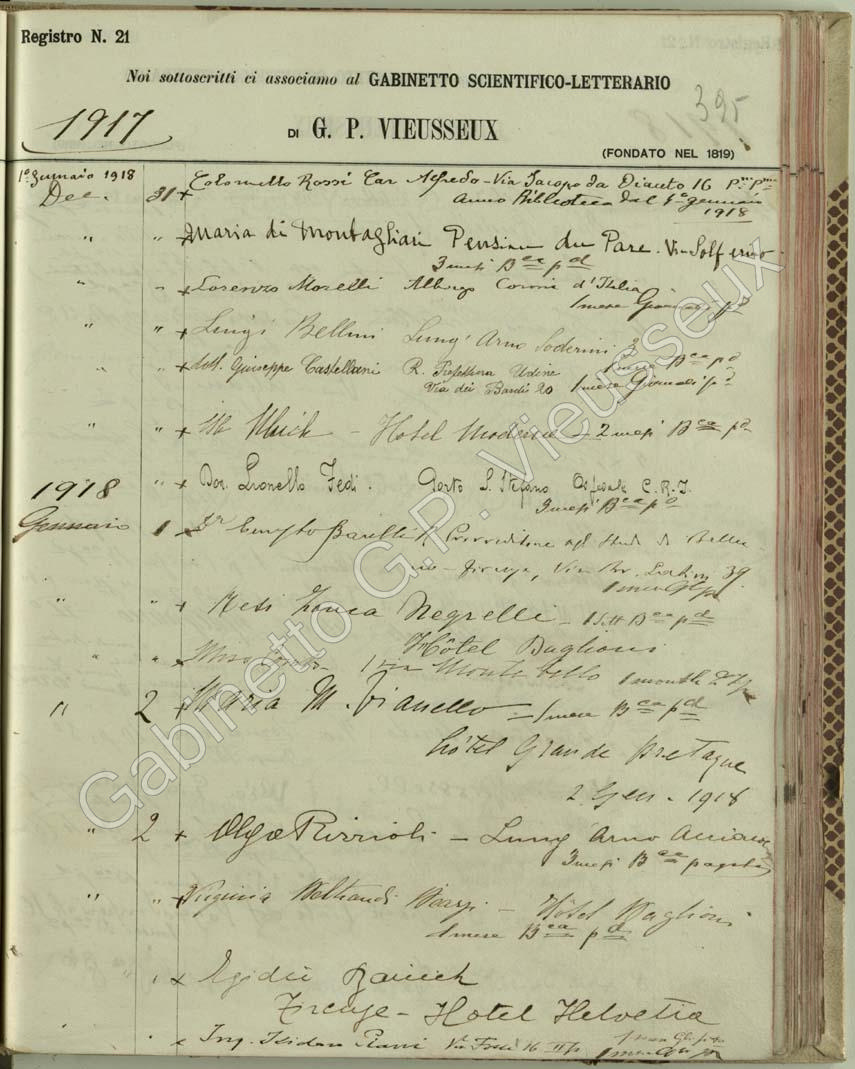 Registro N. 21
Noi sottoscritti ci associamo al GABINETTO SCIENTIFICO-LETTERARIO
395
1917
DI G. P. VIEUSSEUX
(FONDATO NEL 1819)
1º gennaio 1918
Dec. 31 + Colonnello Rossi Cav Alfredo - Via Jacopo da Diaceto 16 Pmo Pmo
Anno Biblioteca dal 1º gennaio
1918
" " + Maria di Montagliari Pension du Parc. Via Solferino
3 mesi Bca pd
" " + Lorenzo Morelli Albergo Corona d'Italia
1 mese Giornali pd
" " + Luigi Bellini Lung' Arno Soderini 3
1 mese Bca pd
dott. Giuseppe Castellani R. Prefettura Udine
Via dei Bardi 20 1 mese Giornali pd
" " + Hotel Moderne - 2 mesi Bca pd
1918 " + Dor. Lionello Fedi. Porto S. Stefano Ospedale C.R.I.
3 mesi Bca pd
Gennaio 1 R. Provveditore agli Studi di Bellu
no - Firenze, Via 39
" " + Negrelli - 1 Sett Bca pd
Hôtel Baglioni
" " Miss 1 via Montebello 1 month
" 2 + Maria M. Vianello - 1 mese Bca pd
hôtel Grande Bretagne
2 Gen - 1918
" 2 + Olga Rizzioli - Lung' Arno Acciaioli
3 mesi Bca pagato
" " + Virginia - Hôtel Baglioni
1 mese Bca pd
" " x Egidio
Firenze - Hotel Helvetia
" " Ing. Isidoro 16
Gabinetto G.P. Vieusseux